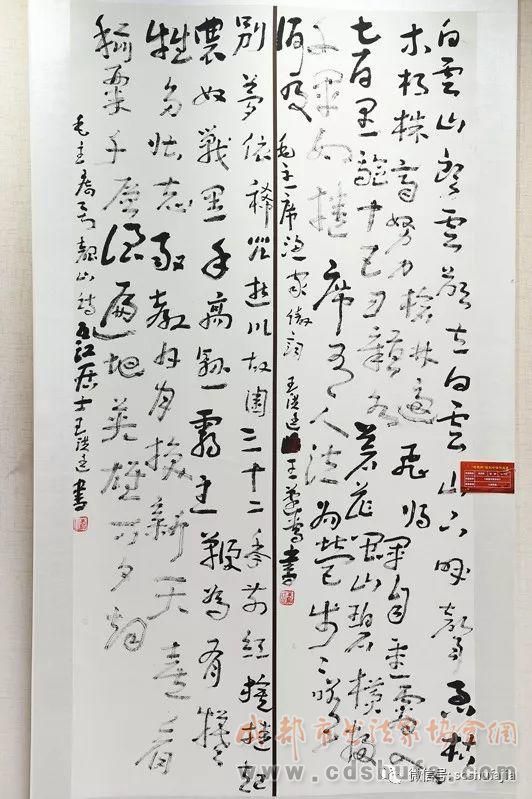 白雲山頭雲欲立白雲山下呼聲急枯
木朽株齊努力槍林逼飛將軍自重霄入
七百里驅十五日贛水蒼茫閩山碧橫掃
千軍如捲席有人泣為營步步嗟
何及
毛主席漁家傲詞 王 書
別夢依稀咒逝川故園三十二年前紅旗捲起
農奴戟黑手高懸霸主鞭為有犧
牲多壯志敢教日月換新天喜看
稻菽千重浪遍地英雄下夕煙
毛主席到韶山詩 居士王 書
成都市书法家协会网
www.cdshufa.com
微信号: scshufajia